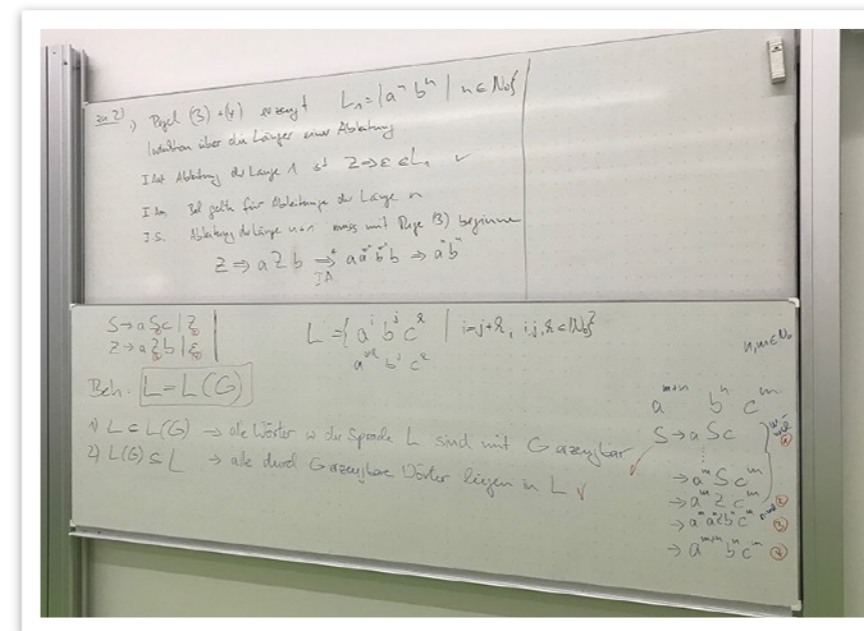 zu 2)
1) Regel (3) + (4) erzeugt L₁ = {aⁿ bⁿ | n ∈ ℕ₀}
Induktion über die Länge einer Ableitung
Ableitung der Länge 1 ist Z ⇒ ε ∈ L₁ ✓
gelte für Ableitungen der Länge n
I.S. Ableitung der Länge n+1 muss mit Regel (3) beginnen
Z ⇒ a Z b ⇒* a b b ⇒ aⁿ bⁿ
IA
S → a S c | Z
Z → a Z b | ε
L = { aⁱ bʲ cᵏ | i = j + k, i, j, k ∈ ℕ₀ }
aʲ⁺ᵏ bʲ cᵏ
n, m ∈ ℕ₀
Beh. L = L(G)
aᵐ⁺ⁿ bⁿ cᵐ
1) L ⊆ L(G) → alle Wörter w der Sprache L sind mit G erzeugbar ✓
2) L(G) ⊆ L → alle durch G erzeugbare Wörter liegen in L ✓
S → a S c
m-mal ①
⋮
→ aᵐ S cᵐ
→ aᵐ Z cᵐ ②
→ aᵐ aⁿ Z bⁿ cᵐ n-mal ③
→ aᵐ⁺ⁿ bⁿ cᵐ ④